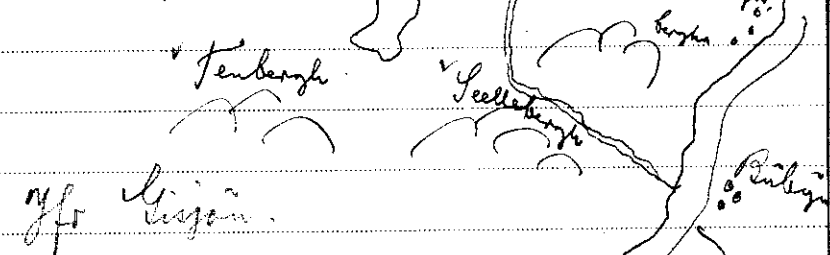 berghn
Tenbergh
Seellebergh
Bübÿn
Yfr Gisjön.